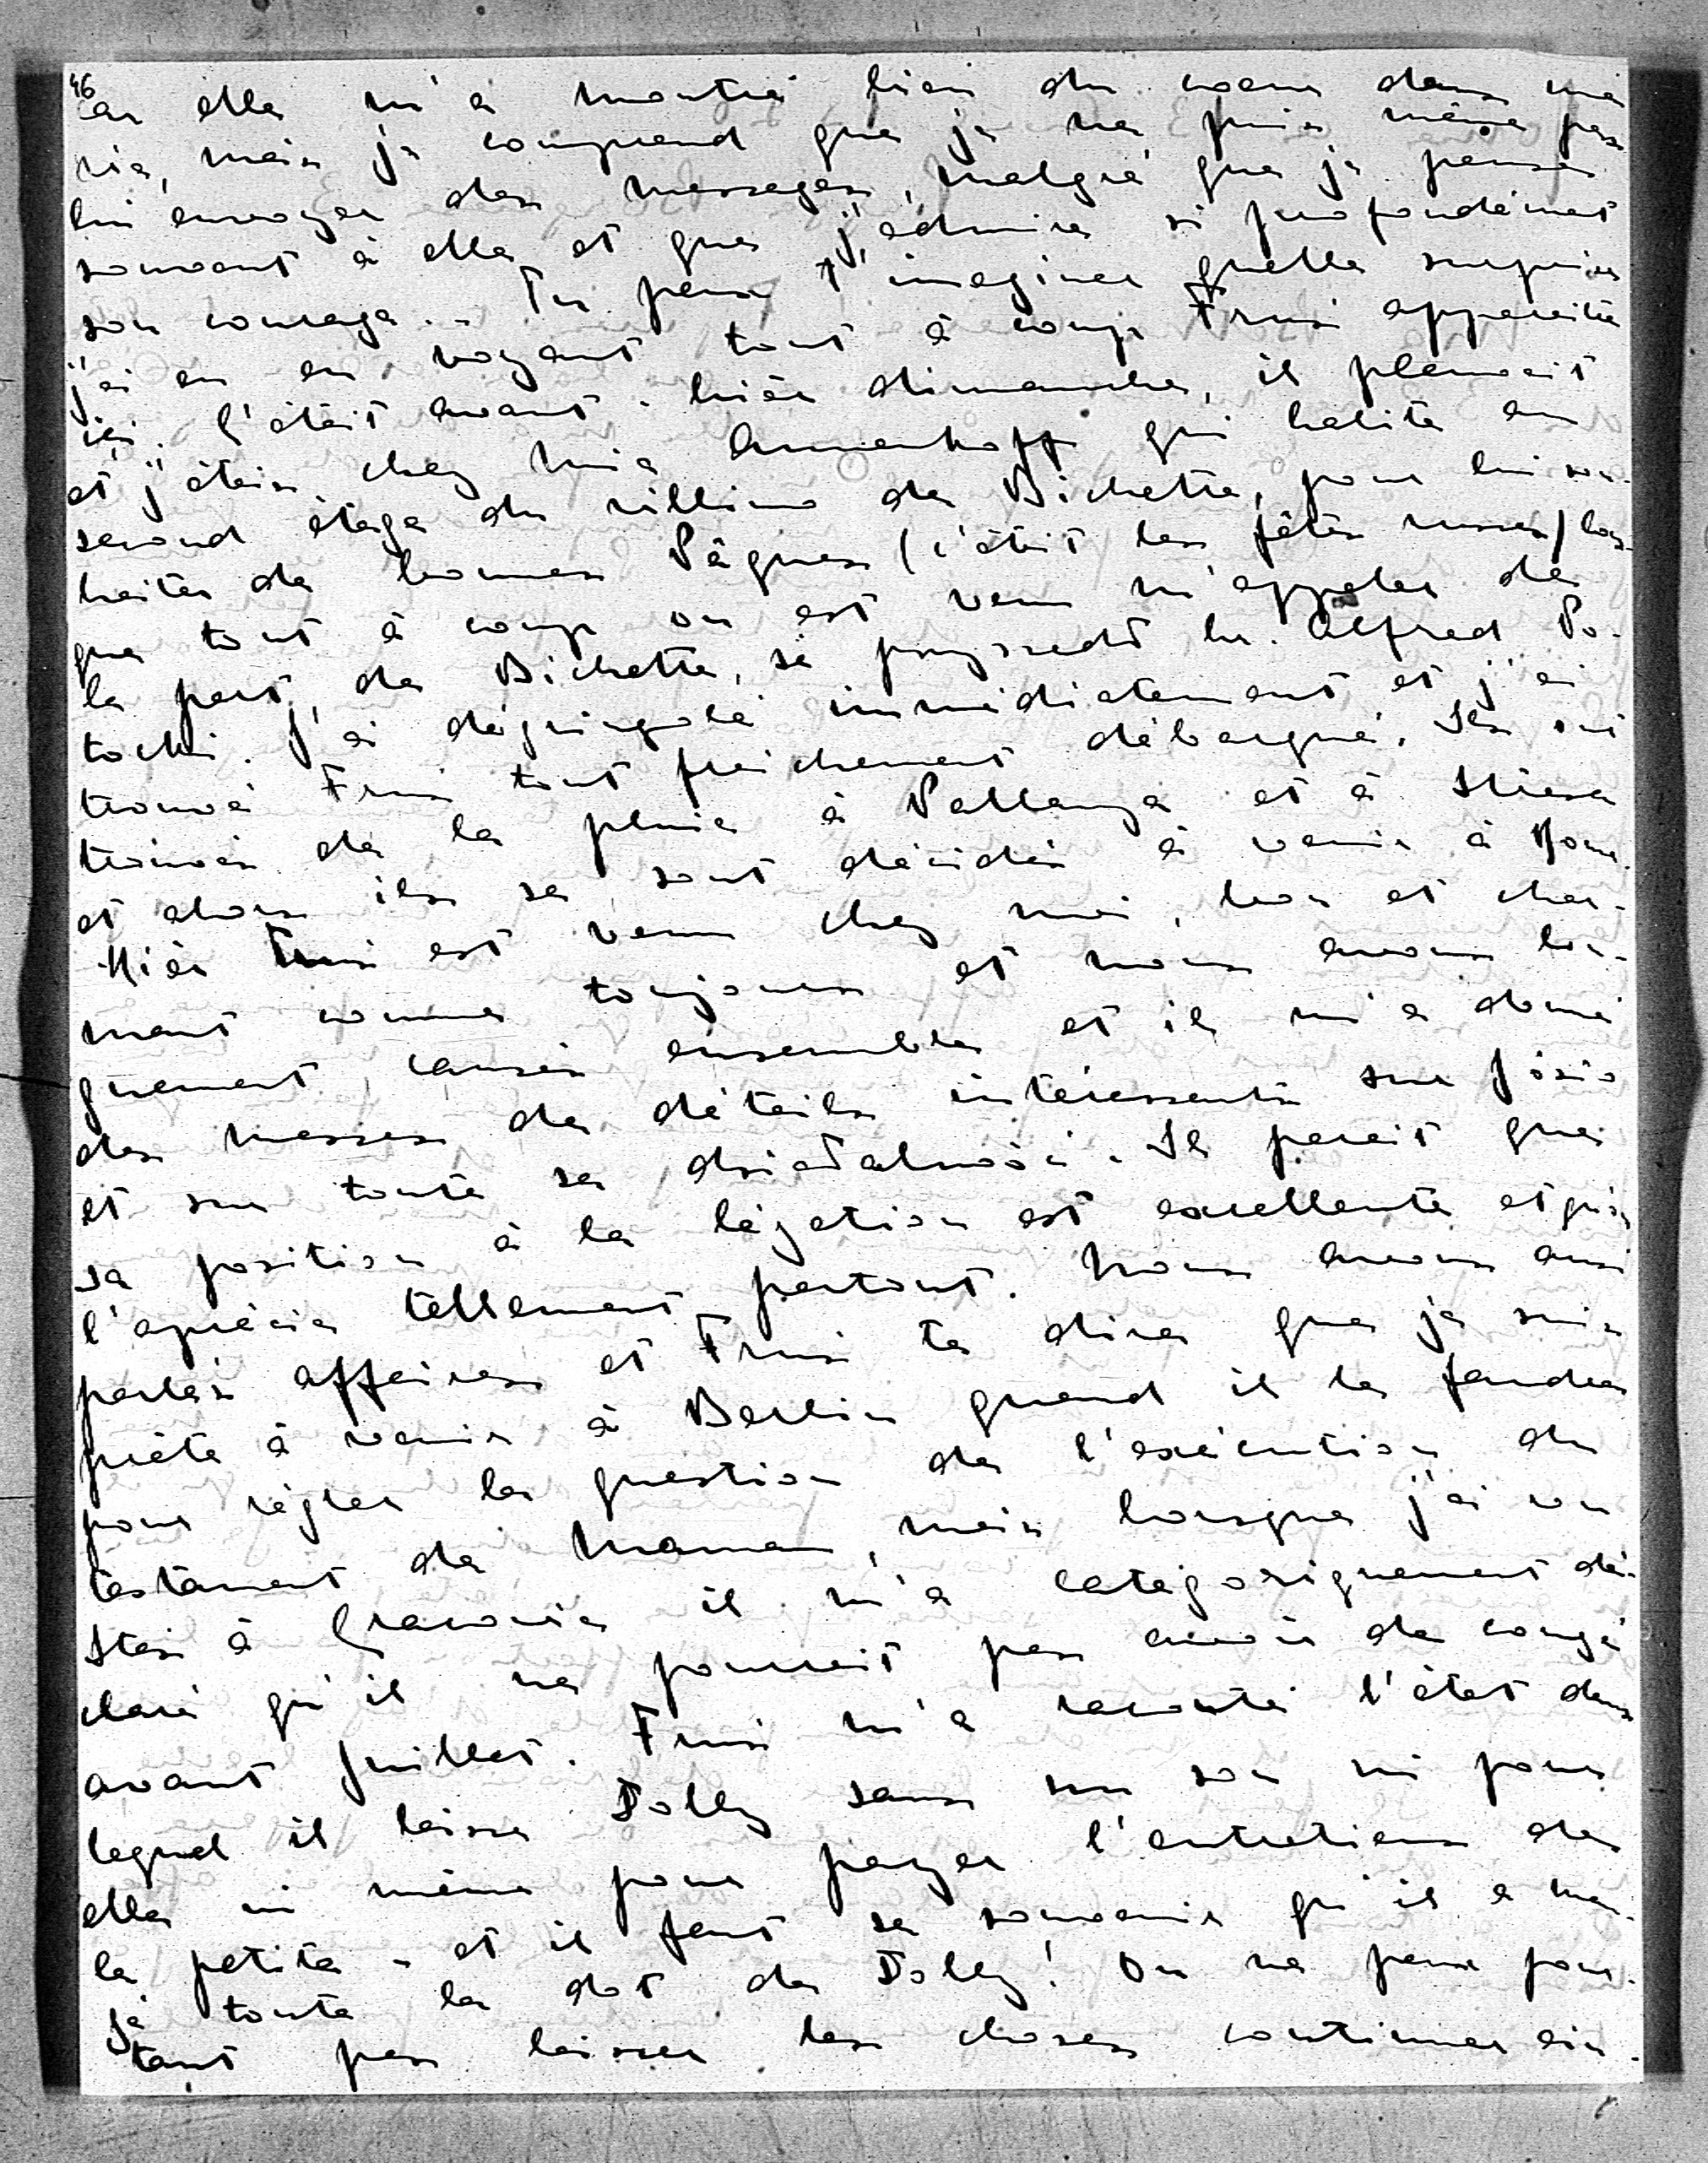 46
car elle m'a montré bien du coeur dans ma
vie, mais je comprend que je ne puis même pas
lui envoyer des messages, malgré que je pense
souvent à elle et que j'admire si profondément
son courage... Tu peux t'imaginer quelle surprise
j'ai eu en voyant tout à coup Frusi apparaître
ici. C'était avant-hier dimanche, il pleuvait
et j'étais chez Mia Annenkoff qui habite au
second étage du villino de Bichette, pour lui sou-
haiter de bonnes Pâques (c'était les fêtes russes) lors-
que tout à coup on est venu m'appeler de
la part de Bichette, że przyszedł hr. Alfred Po-
tocki. J'ai dégringolé immédiatement et j'ai
trouvé Frusi tout fraîchement débarqué. Ils ont
trouvés de la pluie à Pallanza et à Stresa
et alors ils se sont décidés à venir à Rome.
Hièr Frusi est venu chez moi, bon et char-
mant comme toujours et nous avons lon-
guement causés ensemble et il m'a donné
des masses de détails intéressants sur Józio
et sur toute sa działalność. Il parait que
sa position à la légation est excellente et qu'on
l'aprécie tellement partout. Nous avons aussi
parlés affaires et Frusi te dira que je suis
prête à venir à Berlin quand il le faudra
pour régler la question de l'exécution du
testament de Maman, mais lorsque j'ai vu
Stas à Cracovie il m'a catégoriquement dé-
claré qu'il ne pourrait pas avoir de congé
avant Juillet. Frusi m'a raconté l'état dans
lequel il laisse Dolly sans un sou ni pour
elle ni même pour payer l'entretiens de
la petite - et il faut se souvenir qu'il a man-
gé toute la dot de Dolly! On ne peux pour-
tant pas laisser les choses continuer ain-